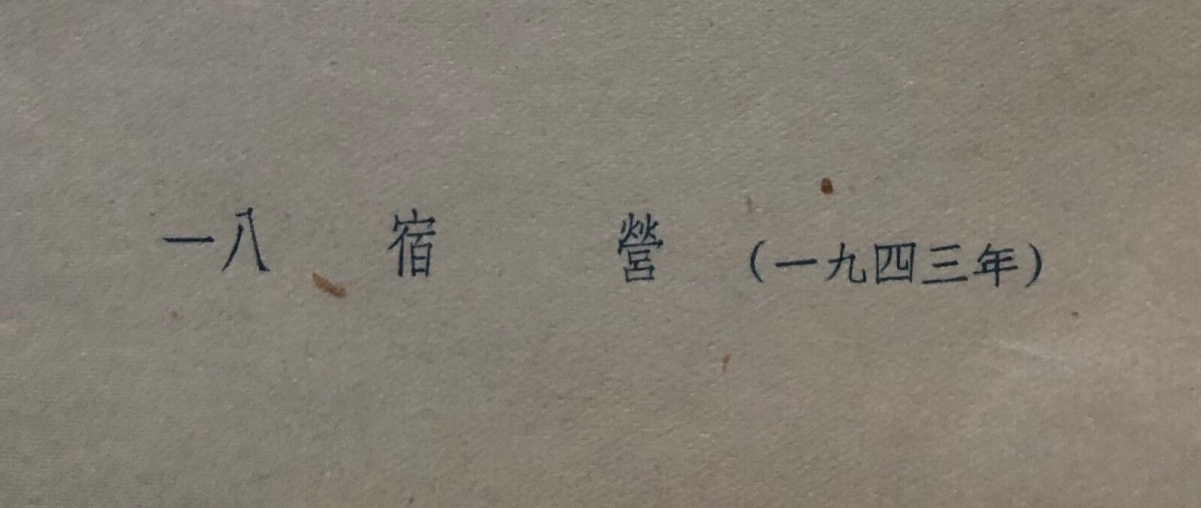 一八　宿　營　（一九四三年）